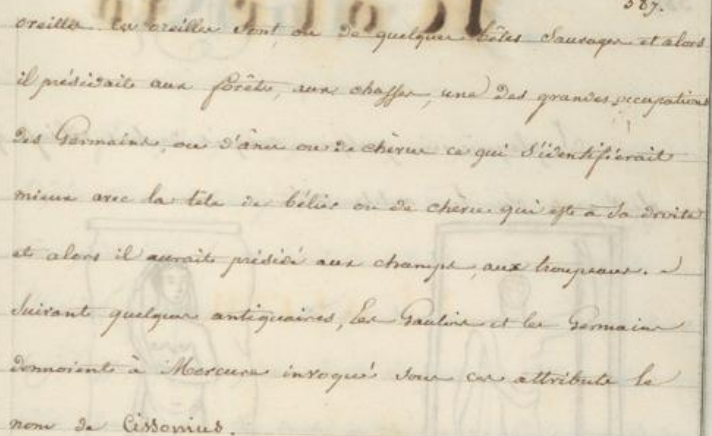 387.
oreilles. Ces oreilles sont, ou de quelques bêtes Sauvages et alors
il présidait aux forêts, aux chasses, une des grandes occupations
des Germains, ou d'âne ou de chèvre ce qui s'identifierait
mieux avec la tete de bélier ou de chèvre qui est à sa droite
et alors il aurait présidé aux champs, aux troupeaux.
Suivant quelques antiquaires, Les Gaulois et les Germains
donnoient à Mercure invoqué sous ces attributs le
nom de Cissonius.